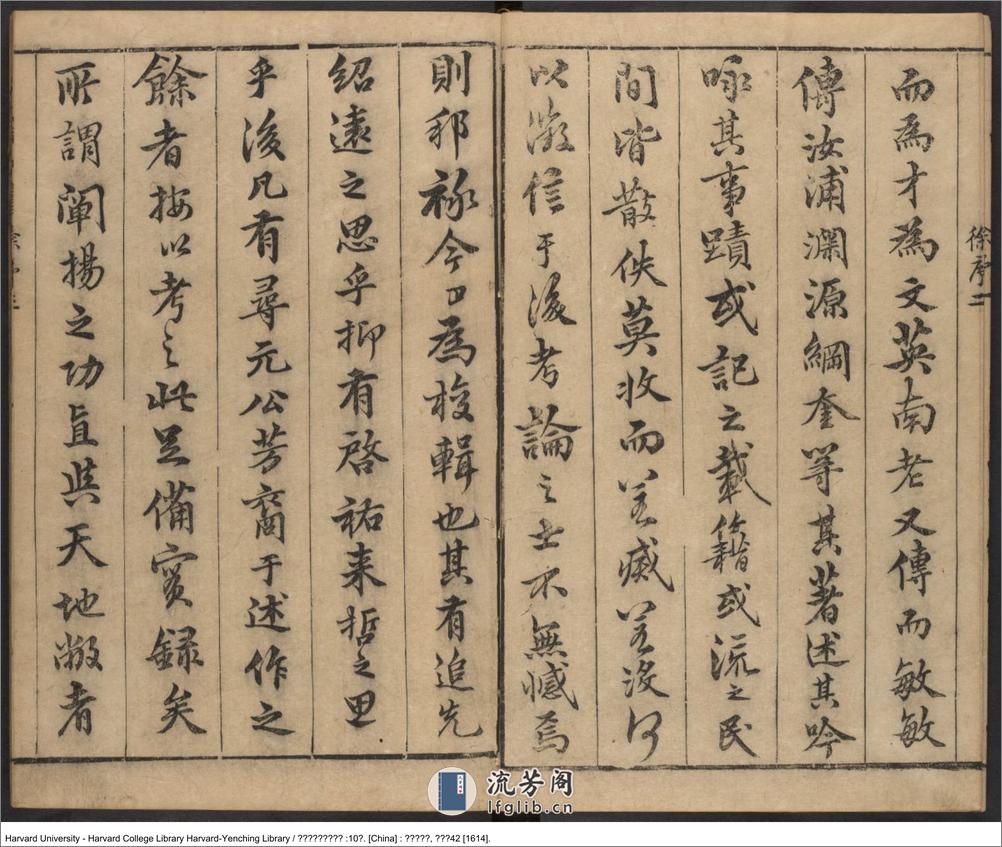 徐序二
而為才為文英南老又傳而敏敏
傳汝浦瀾源綱奎等其著述其吟
咏其事蹟或記之載籍或流之民
間皆散佚莫收而若臧若沒何
以徵信于後考論之士不無憾焉
則邪祿今日為梭輯也其有追先
紹遠之思乎抑有啓祐来哲之思
乎後凡有尋元公芳裔于述作之
餘者按以考之此足備實録矣
所謂闡揚之功直與天地敝者
流芳阁
lfglib.cn
Harvard University - Harvard College Library Harvard-Yenching Library / ????????? :10?. [China] : ?????, ???42 [1614].